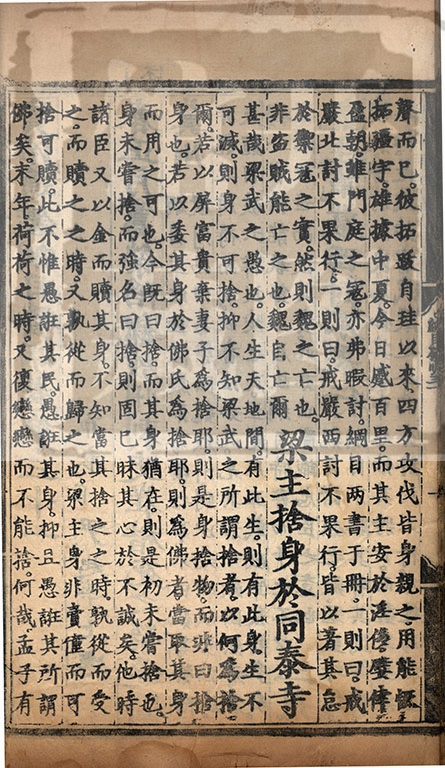 聲而已。彼拓跋自珪以來四方攻伐皆身親之用能恢
拓疆宇。雄據中夏。今日蹙百里。而其主安於淫侈。嬖倖
盈朝。雖門庭之冦亦弗暇討。綱目两書于冊。一則曰。戒
嚴北討不果行。一則曰。戒嚴西討不果行。皆以著其怠
於禦冦之實。然則魏之亡也。
非盗賊能亡之也。魏自亡爾
梁主捨身於同泰寺
甚哉梁武之愚也。人生天地間。有此生。則有此身。生不
可滅。則身不可捨。抑不知梁武之所謂捨者。以何爲捨
爾。若以屏富貴棄妻子爲捨耶。則是身捨物而非曰捨
身也。若以委其身於佛氏爲捨耶。則爲佛者當取其身
而用之可也。今旣曰捨。而其身猶在。則是初未嘗捨也。
身未嘗捨。而強名曰捨。則固已昧其心於不誠矣。他時
諸臣又以金而贖其身。不知當其捨之之時。孰從而受
之。而贖之之時。又孰從而歸之也。梁主身非賣僮而可
捨可贖。此不惟愚誑其民。愚誑其身。抑且愚誑其所謂
佛矣。末年荷荷之時。又復戀戀而不能捨。何哉。孟子有